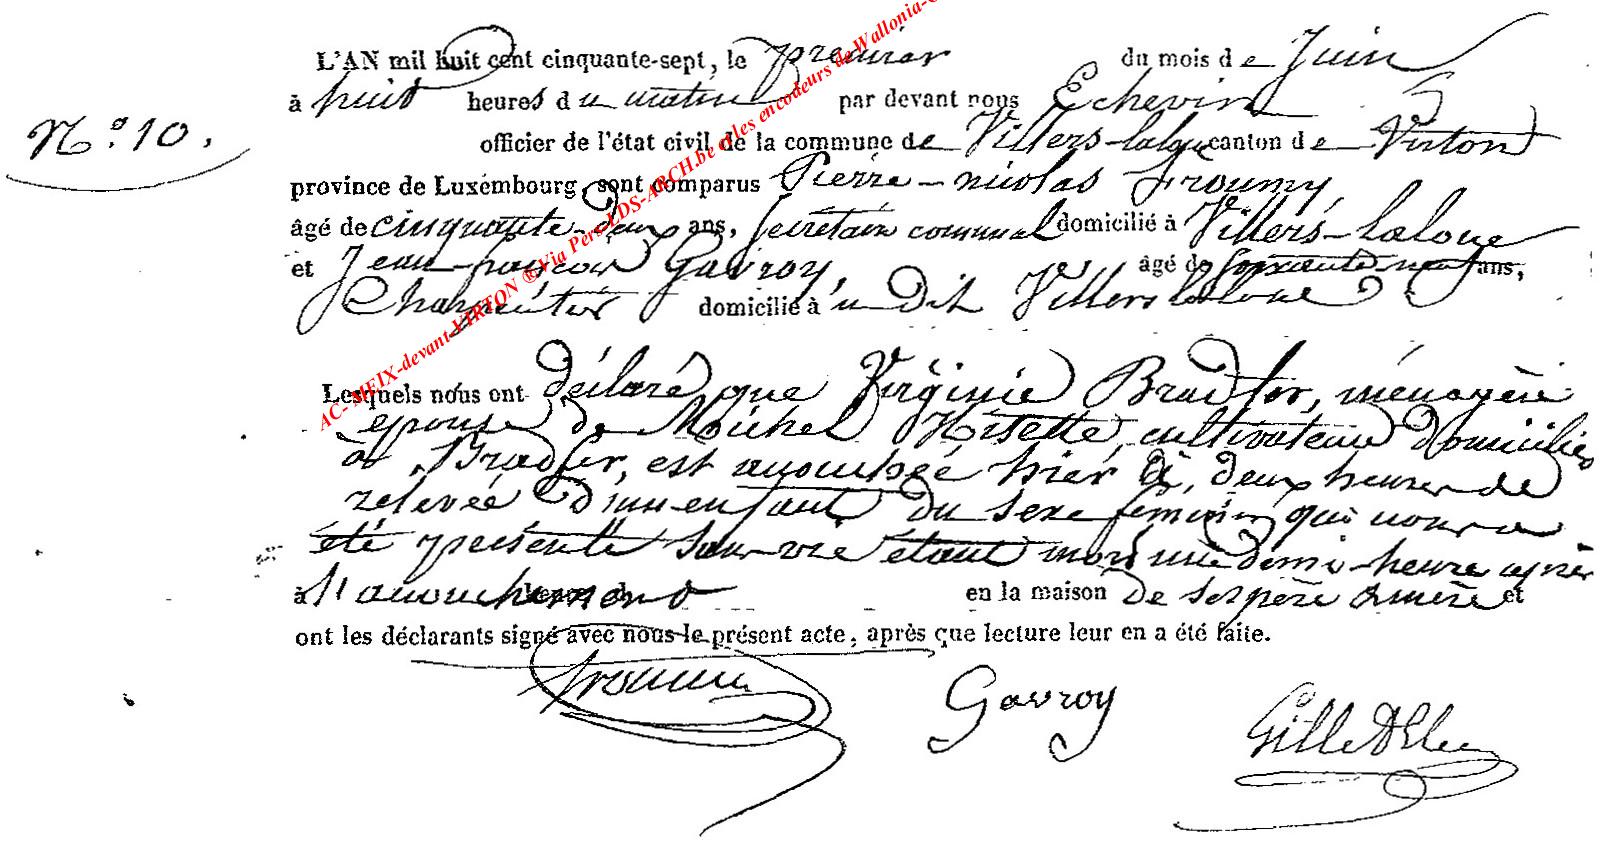 L'AN mil huit cent cinquante-sept, le premier du mois de Juin
à huit heures du matin par devant nous Echevin
N.º 10.
officier de l'état civil de la commune de Villers-laloue canton de Virton
province de Luxembourg, sont comparus Pierre-nicolas Froumy,
âgé de cinquante-deux ans, secrétaire communal domicilié à Villers-laloue
et Jean-françois Gavroy, âgé de soixante-neuf ans,
Charpentier domicilié à u dit Villers laloue
Lesquels nous ont déclaré que Virginie Bradfer, ménagère
epouse de Michel Hisette, cultivateur domiciliés
à Bradfer, est accouchée hier à deux heures de
relevée d'un enfant du sexe féminin qui nous a
été présenté sans vie étant mort une demi-heure après
à l'accouchement en la maison de ses père & mère et
ont les déclarants signé avec nous le présent acte, après que lecture leur en a été faite.
Froumy Gavroy
AC- MEIX-devant-VIRTON ® Via Pers-LDS-ARCH.be et les encodeurs de Wallonia-